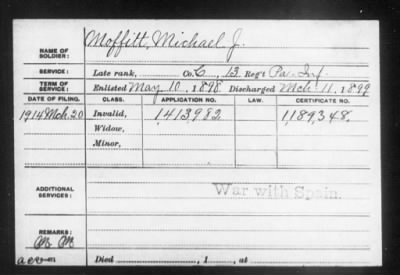 NAME OF SOLDIER: Moffitt, Michael J.
SERVICE: Late rank, Co. C, 13 Reg't Pa. Inf.
TERM OF SERVICE: Enlisted May 10, 1898 Discharged Mch 11, 1899
DATE OF FILING. CLASS. APPLICATION NO. LAW. CERTIFICATE NO.
1914 Mch. 20 Invalid, 1413982 1,189,348.
Widow,
Minor,
ADDITIONAL SERVICES: War with Spain.
REMARKS:
Died , 1 , at